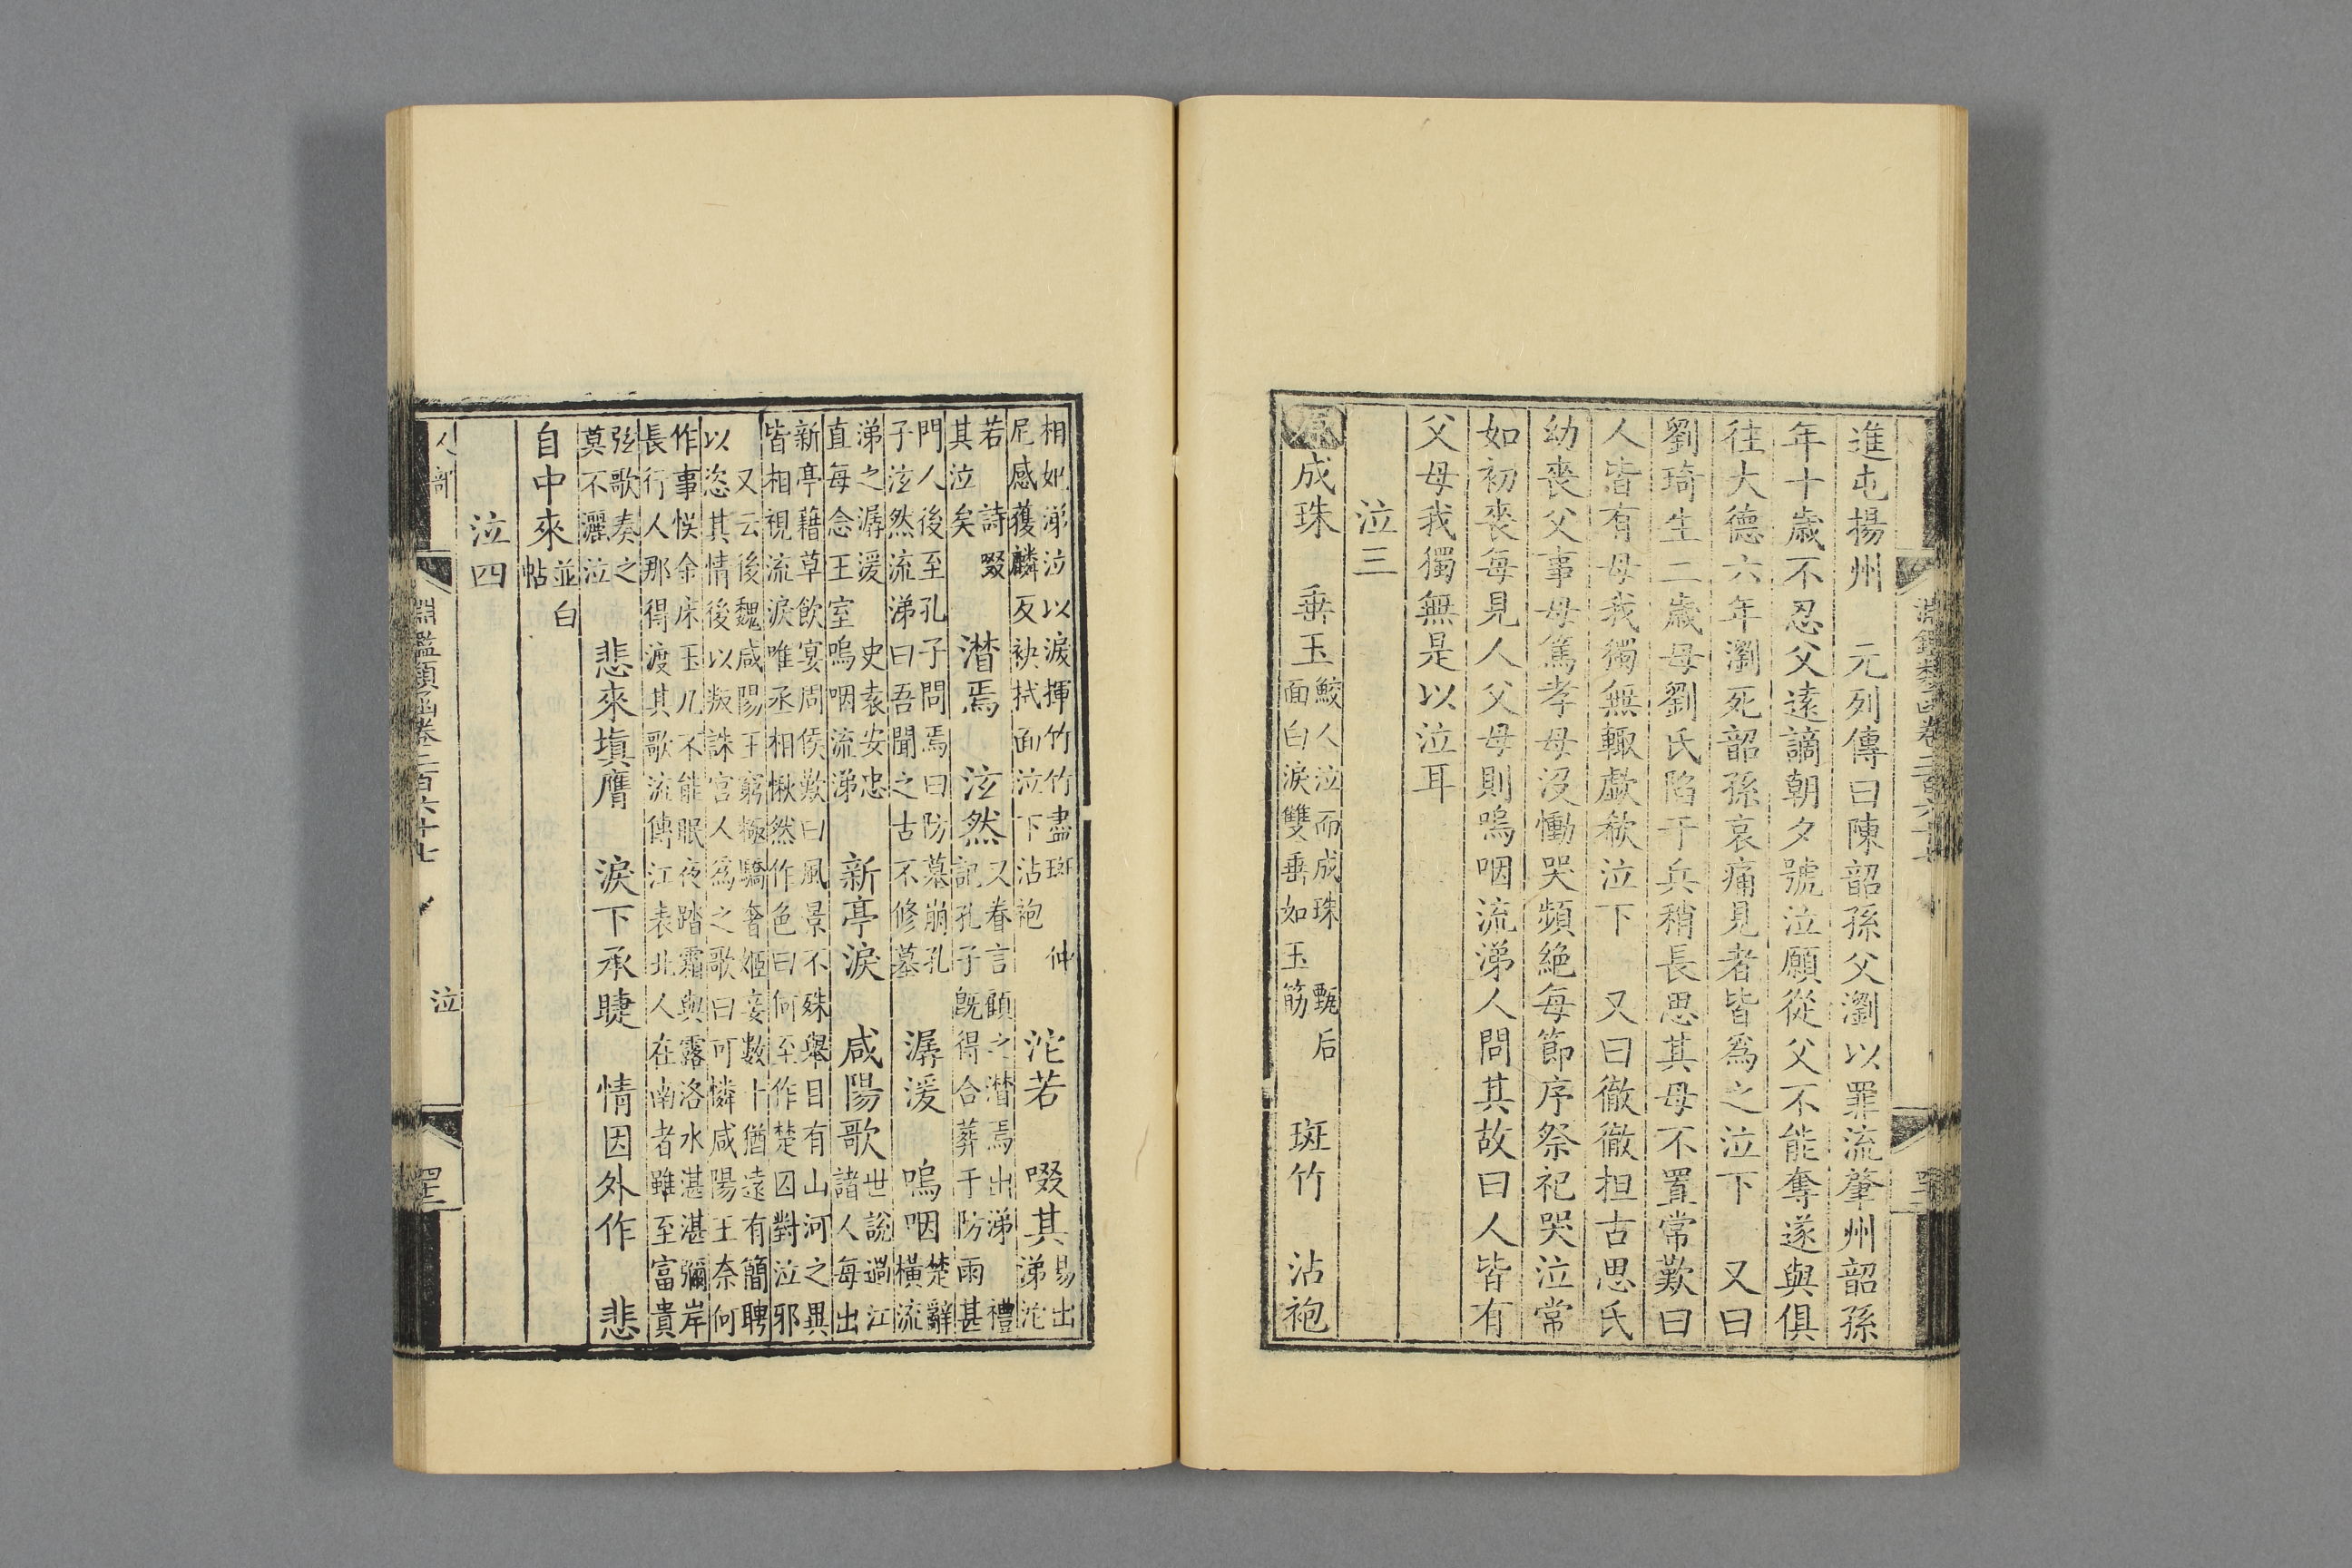 進屯揚州　元列傳曰陳韶孫父瀏以罪流肇州韶孫
年十歲不忍父遠謫朝夕號泣願從父不能奪遂與俱
往大德六年瀏死韶孫哀痛見者皆為之泣下　又曰
劉琦生二歲母劉氏陷于兵稍長思其母不置常歎曰
人皆有母我獨無輒歔欷泣下　又曰徹徹担古思氏
幼喪父事母篤孝母沒慟哭頻絕每節序祭祀哭泣常
如初喪每見人父母則嗚咽流涕人問其故曰人皆有
父母我獨無是以泣耳
泣三
原成珠　垂玉
鮫人泣而成珠　甄后
面白淚雙垂如玉筋
斑竹　沾袍
相如涕泣以淚揮竹竹盡斑　仲
尼感獲麟反袂拭面泣下沾袍
沱若　啜其
易出
涕沱
若　詩啜
其泣矣
潸焉　泫然
又眷言顧之潸焉出涕　禮
記孔子既得合葬于防雨甚
門人後至孔子問焉曰防墓崩孔
子泫然流涕曰吾聞之古不修墓
潺湲　嗚咽
楚辭
橫流
涕之潺湲　史袁安忠
直每念王室嗚咽流涕
新亭淚　咸陽歌
世說過江
諸人每出
新亭藉草飲宴周侯歎曰風景不殊舉目有山河之異
皆相視流淚唯丞相愀然作色曰何至作楚囚對泣邪
又云後魏咸陽王窮極驕奢姬妾數十猶遠有簡聘
以恣其情後以叛誅宮人為之歌曰可憐咸陽王奈何
作事悮金床玉几不能眠夜踏霜與露洛水湛湛彌岸
長行人那得渡其歌流傳江表北人在南者雖至富貴
弦歌奏之
莫不灑泣
悲來填膺　淚下承睫　情因外作　悲
自中來
並白
帖
泣四
人部
淵鑑類函卷二百六十七
泣